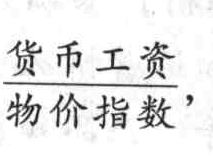 货币工资
物价指数，